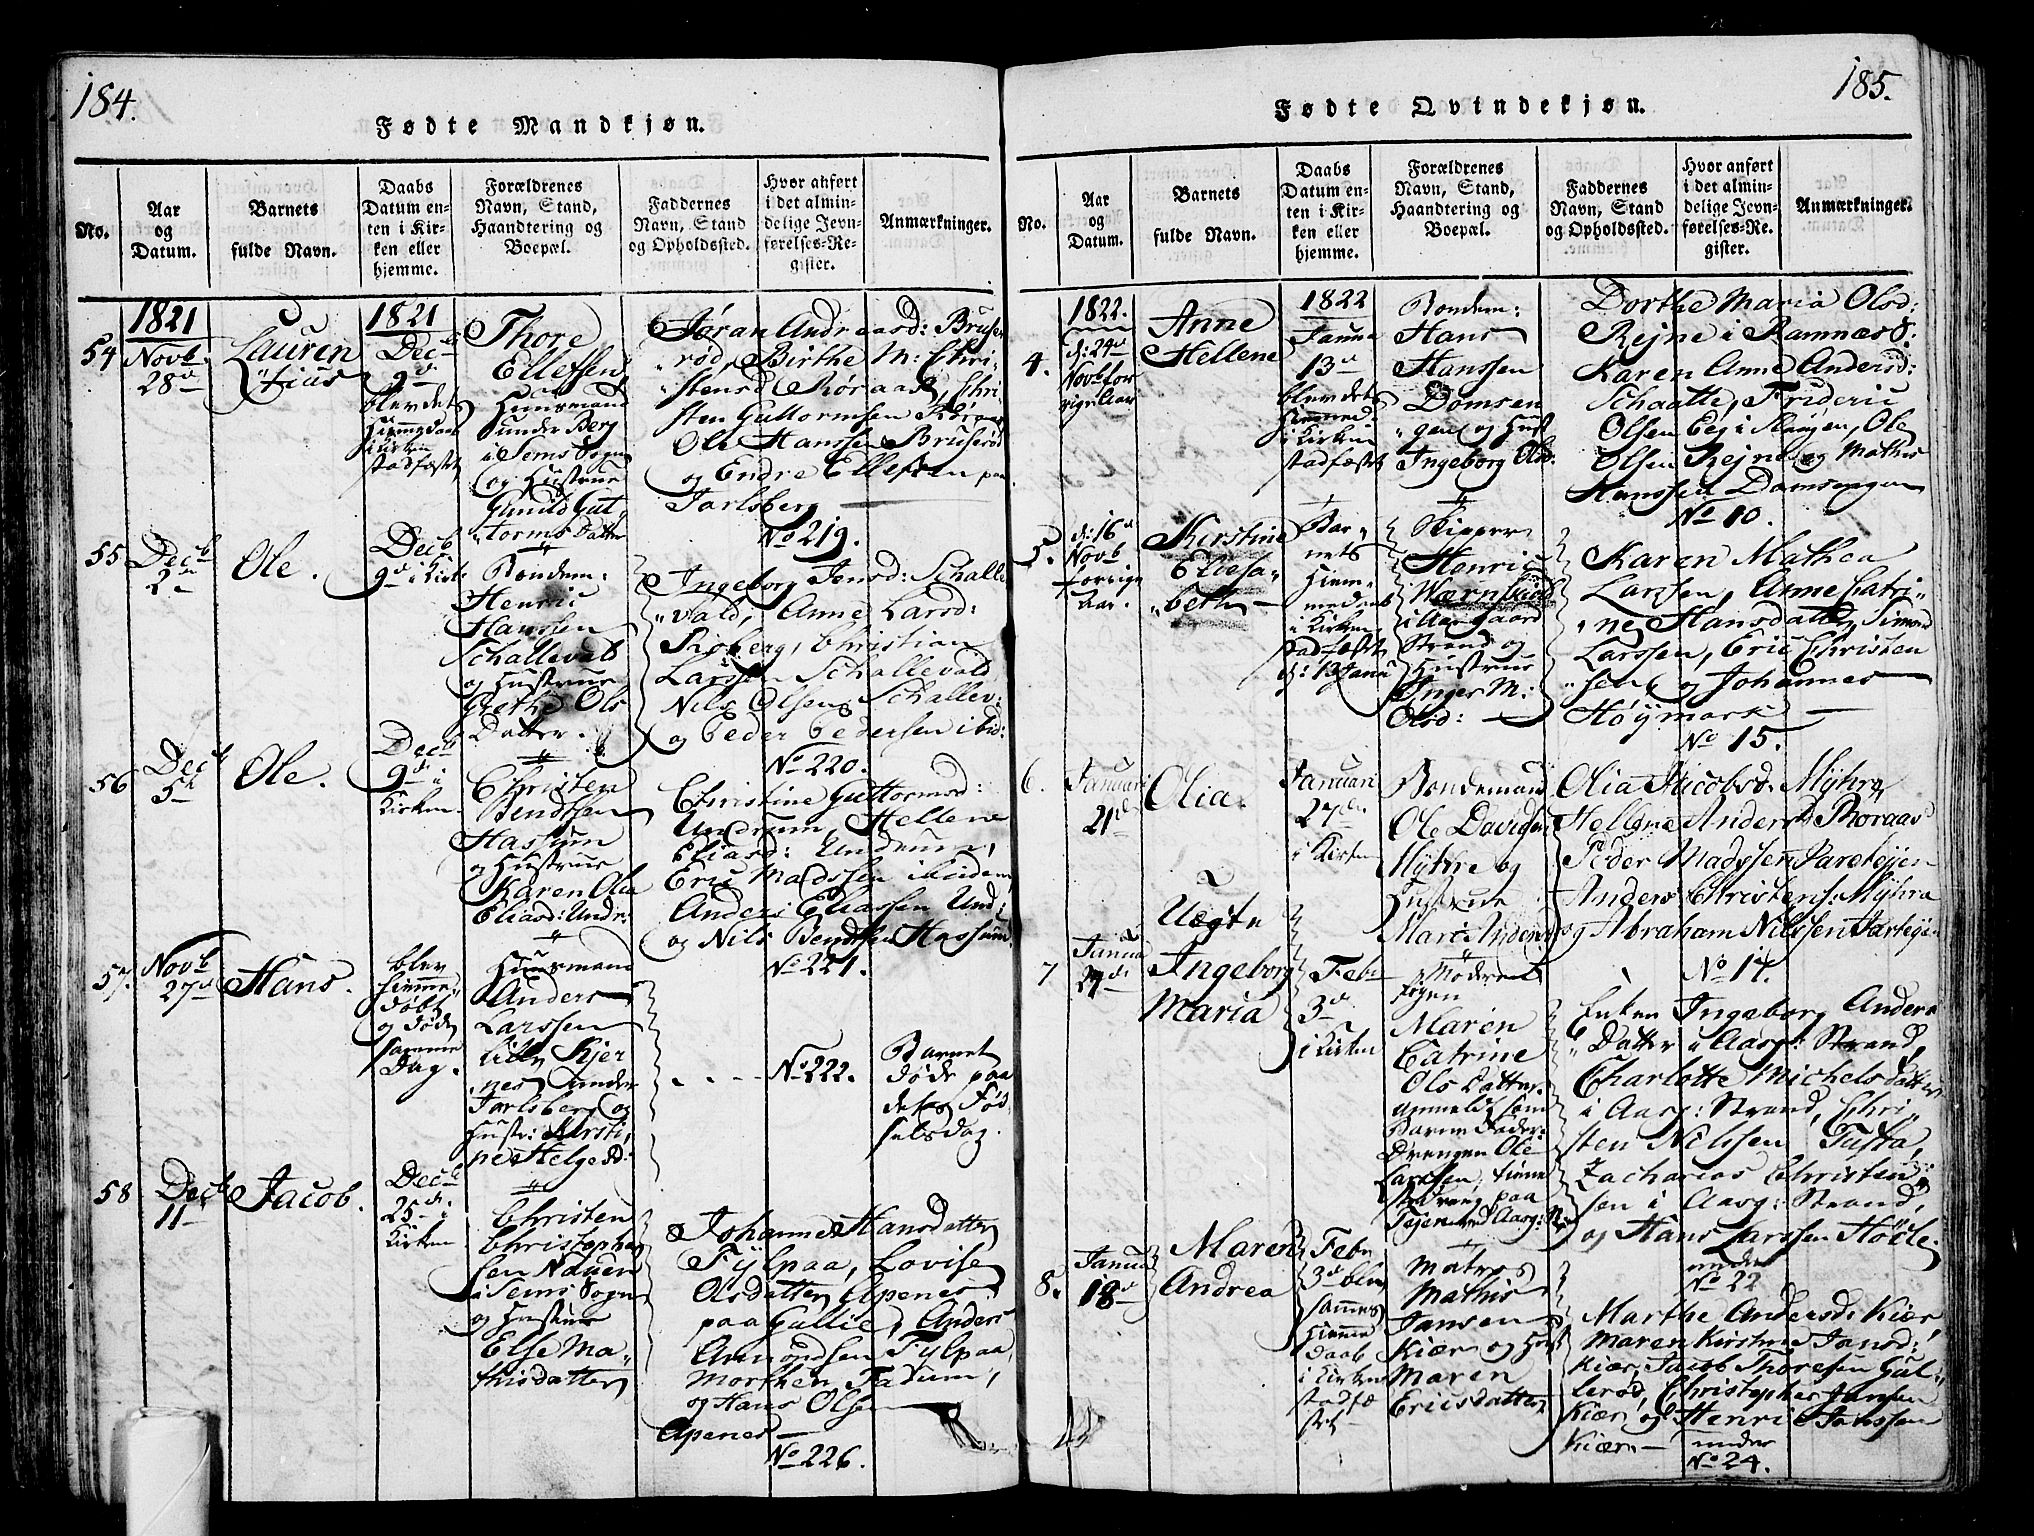 184.
Fødte Mandkjøn.
No.
Aar
og
Datum.
Barnets
fulde Navn.
Daabs
Datum en-
ten i Kir-
ken eller
hjemme.
Forældrenes
Navn, Stand,
Haandtering og
Boepæl.
Faddernes
Navn, Stand
og Opholdssted.
Hvor anført
i det almin-
delige Jevn-
førelses-Re-
gister.
Anmærkninger.
54
1821
Novb.
28d
Lauren
"tius
1821
Decb
9d
blev dets
Hiemmedaab
i Kirken
stadfæstet
Thore
Ellefsen
Huusmand
under Berg
i Sems Sogn
og Hustrue
Gunild Gut-
"torms Datter
Jøran Andreasd: Bruse-
rød, Birthe M: Chri-
stensd Roraas, Chri-
sten Guttormsen Roraas
Ole Hanssen Bruserød
og Endre Ellefsen paa
Jarlsberg
No 219.
55
Decb
2d
Ole.
Decb
9d i Kirk:
Bondem:
Henric
Hanssen
Schallevald
og Hustrue
Grethe Ols
Datter.
Ingeborg Jensd: Schalle
"vald, Anne Larsd:
Roberg, Christian
Larssen Schallevald
Nils Olsen Schallev:
og Peder Pedersen ibid:
No 220.
56
Decb
5h
Ole.
Decb
9d i
Kirken
Christen
Bendtsen
Hassum
og Hustrue
Karen Olea
Eliasd: Undr:
Christine Guttormsd:
Undrum, Hellene
Eliasd: Undrum,
Eric Madssen ibidem,
Anders Eliassen Und:
og Nils Bendtsen Hassum
No 221.
57.
Novb
27d
Hans.
blev
hiemme-
døbt
og døde
samme
Dag.
Huusmand
Anders
Larssen
Lille Kjer
nes under
Jarlsberg og
Hustr: Kirsti-
ne Helgesd:
No 222.
Barnet
døde paa
dets Fød-
selsdag.
58
Decb
11
Jacob.
Decb
25d i
Kirken
Christen
Christopher
sen Nauen
i Sems Sogn
og Hustrue
Else Ma-
thisdatter
Johanne Hansdatter
Fylpaa, Lovise
Olsdatter Apenes
paa Gullie, Anders
Amundsen Fylpaa,
Morthen Fadum,
og Hans Olsen
Apenes
No 226.
185.
Fødte Qvindekjøn.
No.
Aar
og
Datum.
Barnets
fulde Navn.
Daabs
Datum en-
ten i Kir-
ken eller
hjemme.
Forældrenes
Navn, Stand,
Haandtering og
Boepæl.
Faddernes
Navn, Stand
og Opholdssted.
Hvor anført
i det almin-
delige Jevn-
førelses-Re-
gister.
Anmærkninger.
4.
1822.
d: 24d
Novb for
rige Aar
Anne
Hellene
1822
Janua
13d
blev dets
Hiemmed
i Kirken
stadfæstet
Bondem:
Hans
Hanssen
Domsen
"gen og Hust
Ingeborg Olsd.
Dorthe Maria Olsd:
Rejne i Ramnæs S:
Karen Anne Andersd:
Schaatte, Frideric
Olsen Eeg i Slangen, Ole
Olsen Rejne og Mathis
Hanssen Domsengen
No 10.
5.
d: 16d
Novb
forrige
Aar.
Kirstine
Eliesa-
"beth
Bar-
nets
Hiem-
medaab
i Kirken
stadfæstet
d: 13 Janu
Skipper
Henric
Wærnskiold
i Aasgaard
Strand og
Hustrue
Inger M:
Olsd:
Karen Mathea
Larssen, Anne Catri-
"ne Hansdatter, Simon
Larssen, Eric Christen
"sen og Johannes
Høymark
No 15.
6.
Januari
21d
Olia.
Januari
27d.
i Kirken
Bondemand
Ole Davidsen
Myhre og
Hustrue
Mari Andersd
Olia Jacobsd: Myhre,
Hellene Andersd Roraas
Peder Madssen Jaretejen
Anders Christens: Myhre
og Abraham Nilssen Jareteien
No 17.
7
Janua
27d.
Uægte
Ingeborg
Maria
Febr
3d
i Kirken
Møderne
Pigen
Maren
Catrine
Ols Datter,
anmeldt som
Barne Fader:
Drengen Ole
Larssen, tiene
stedreng paa
Fejen ved Aasg: St
Enken Ingeborg Anders
"Datter i Aasg: Strand,
Charlotte Michelsdatter
i Aasg: Strand, Chri-
sten Nilssen Tufta,
Zacharias Christen
sen i Aasg: Strand,
og Hans Larssen Høcle.
under
No 22
8.
Janua
18d
Maren
Andrea
Febr
3d blev
sammes
Hiemme
daab
i Kirken
stadfæ
stet
Matros
Mathis
Jansen
Kiær og Hust
Maren
Ericsdatter
Marthe Andersd: Kiær,
Maren Kirstine Jansd:
Kiær, Jacob Thoresen Gul-
lerød, Christopher Jansen
Kiær, og Henric Janssen
Kiær.
under
No 24.